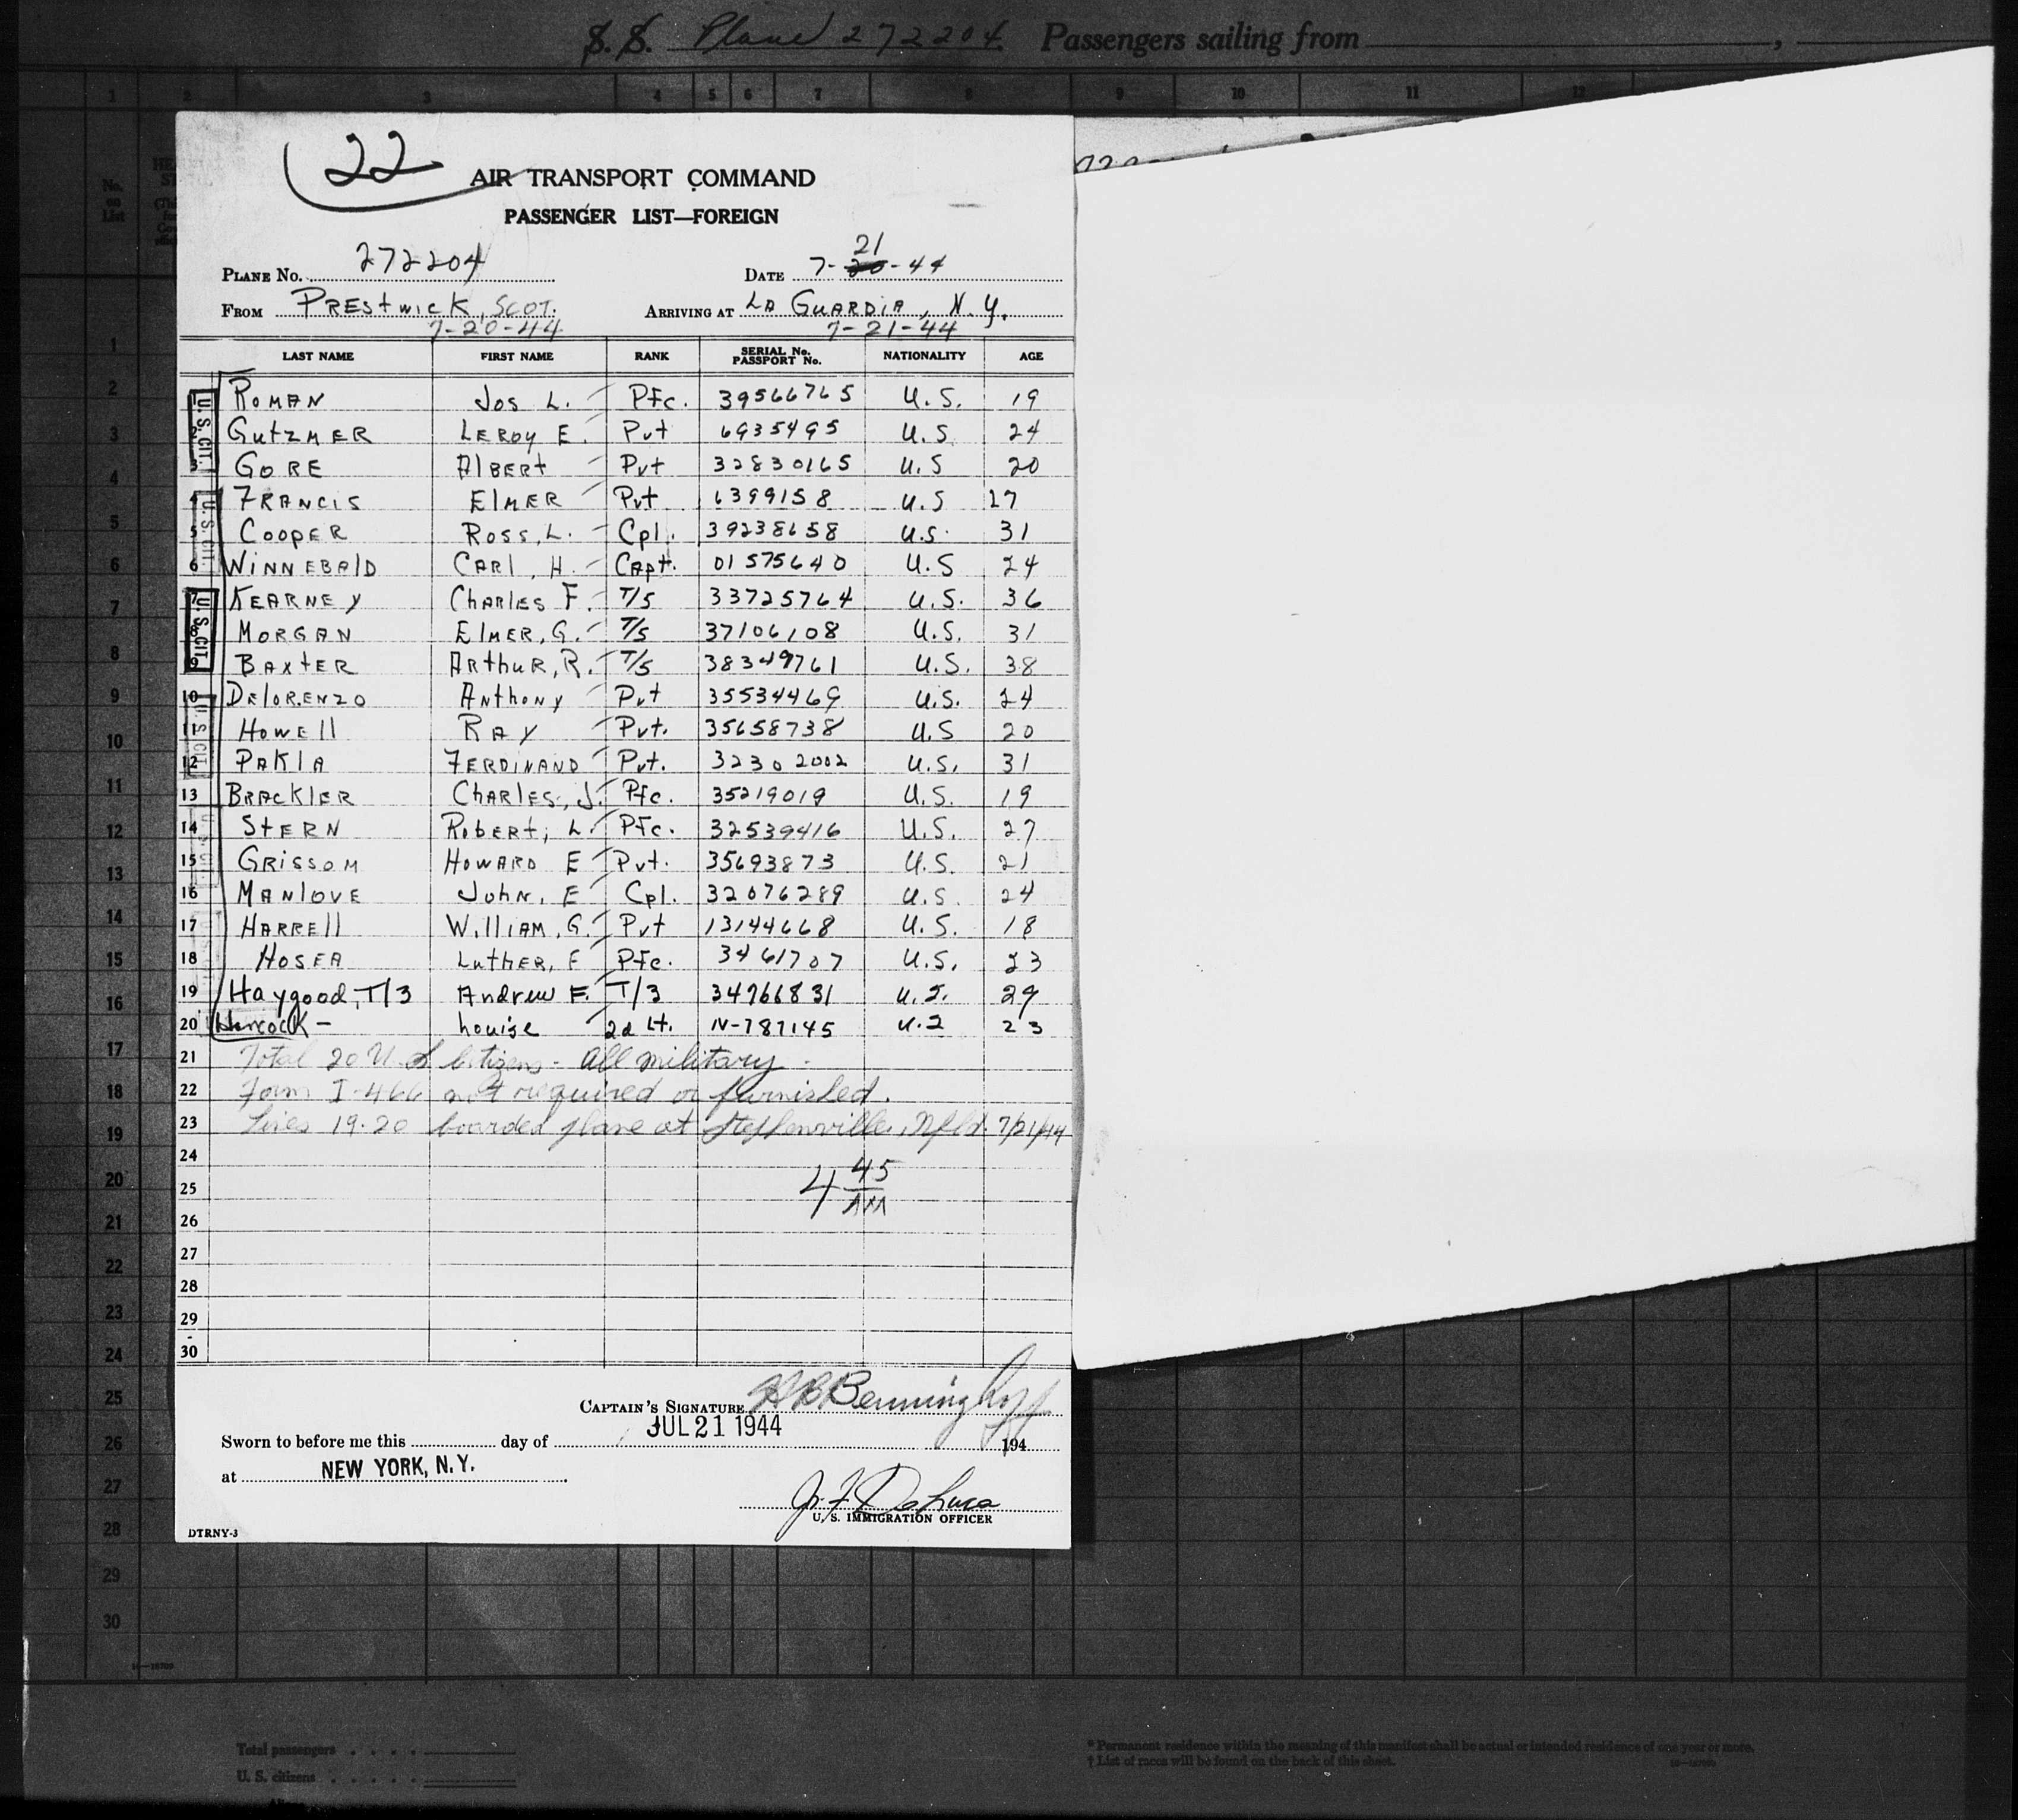 S.S. Plane 272204 Passengers sailing from
1 2 3 4 5 6 7 8 9 10 11 12
22
AIR TRANSPORT COMMAND
PASSENGER LIST—FOREIGN
PLANE NO. 272204 DATE 7-21-44
FROM PRESTWICK, SCOT. ARRIVING AT LA GUARDIA, N.Y.
7-20-44 7-21-44
LAST NAME FIRST NAME RANK SERIAL No. PASSPORT No. NATIONALITY AGE
1 ROMAN Jos L. Pfc. 39566765 U.S. 19
2 GUTZMER LEROY E. Pvt 6935495 U.S. 24
3 GORE AlBERT Pvt 32830165 U.S 20
4 FRANCIS ElMER Pvt 6399158 U.S 27
5 COOPER ROSS, L. Cpl. 39238658 U.S. 31
6 WINNEBAlD CARl, H. CApt. 01575640 U.S 24
7 KEARNEY ChARlES F. T/5 33725764 U.S. 36
8 MORGAN ElMER, G. T/5 37106108 U.S. 31
9 BAXtER ARthUR, R. T/5 38349761 U.S. 38
10 DElORENZO ANthONy Pvt 35534469 U.S. 24
11 HOWEll RAY Pvt. 35658738 U.S 20
12 PAKlA FERDINAND Pvt. 32302002 U.S. 31
13 BRACKlER ChARLES, J. Pfc. 35219019 U.S. 19
14 StERN RobERt, L. Pfc. 32539416 U.S. 27
15 GRISSOM HOWARD E Pvt. 35693873 U.S. 21
16 MANlOVE JohN, E Cpl. 32076289 U.S. 24
17 HARREll WIllIAM, G. Pvt 13144668 U.S. 18
18 HOSEA LuthER, E Pfc. 3461707 U.S. 23
19 Haygood, T/3 Andrew F. T/3 34766831 U.S. 29
20 Louise 2d Lt. N-787145 U.S 23
21 Total 20 U.S. Citizens - All military.
22 Form I-466 not required or furnished.
23 Lines 19-20 boarded plane at Stephenville, Nfld. 7/21/44
24
4 45 AM
25
26
27
28
29
30
CAPTAIN'S SIGNATURE H B Benninghoff
JUL 21 1944
Sworn to before me this day of 194
at NEW YORK, N.Y.
J. F. DeLuca
U. S. IMMIGRATION OFFICER
DTRNY-3
U.S. CIT.
U.S. CIT.
U.S. CIT.
U.S. CIT.
No. on List
1
2
3
4
5
6
7
8
9
10
11
12
13
14
15
16
17
18
19
20
21
22
23
24
25
26
27
28
29
30
Total passengers
U. S. citizens
* Permanent residence within the meaning of this manifest shall be actual or intended residence of one year or more.
† List of races will be found on the back of this sheet.